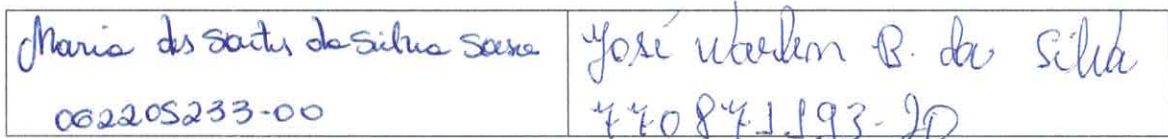 Maria dos Santos da Silva Sousa
062205233-00
José Warlem B. da Silva
770871193-20